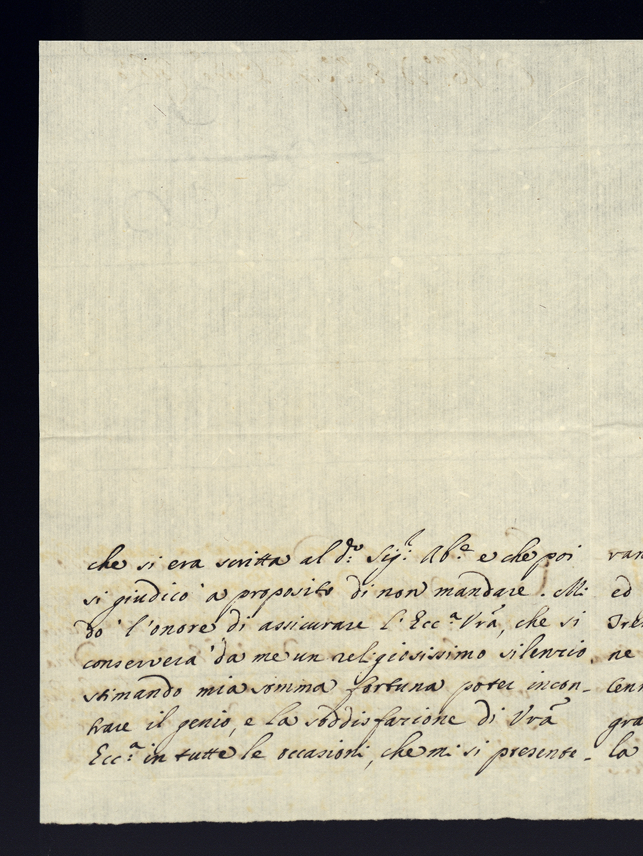 che si era scritta al d.º Sig.r Ab.e e che poi
si giudicò a proposito di non mandare. Mi
dò l'onore di assicurare l'Ecc.a Vrã, che si
conserverà da me un religiosissimo silenzio
stimando mia somma fortuna poter incon-
trare il genio, e la soddisfazione di Vrã
Ecc.a in tutte le occasioni, che mi si presente-
van
ed
ne
gra
la